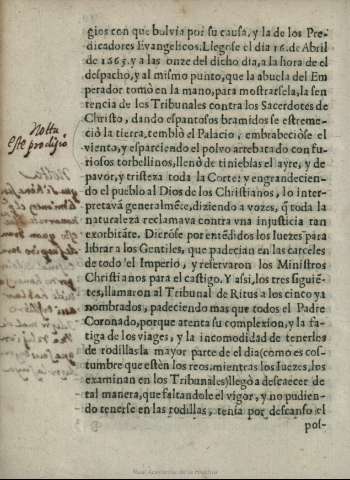 gios con que bolvia por su causa, y la de los Pre-
dicadores Evangelicos. Llegóse el dia 16. de Abril
de 1665. y a las onze del dicho dia, a la hora de el
despacho, y al mismo punto, que la abuela del Em
perador tomò en la mano, para mostrarsela, la sen
tencia de los Tribunales contra los Sacerdotes de
Christo, dando espantosos bramidos se estreme-
ciò la tierra, temblò el Palacio, embrabecióse el
viento, y esparciendo el polvo arrebatado con fu-
riosos torbellinos, llenò de tinieblas el ayre, y de
pavor, y tristeza toda la Corte: y engrandecien-
do el pueblo al Dios de los Christianos, lo inter-
pretavã generalmẽte, diziendo a vozes, q̃ toda la
naturaleza reclamava contra vna injusticia tan
exorbitãte. Dieróse por entẽdidos los Iuezes para
librar a los Gentiles, que padecian en las carceles
de todo el Imperio, y reservaron los Ministros
Christianos para el castigo. Y assi, los tres siguiẽ-
tes, llamaron al Tribunal de Ritus a los cinco ya
nombrados, padeciendo mas que todos el Padre
Coronado, porque atenta su complexion, y la fa-
tiga de los viages, y la incomodidad de tenerles
de rodillas la mayor parte de el dia (como es cos-
tumbre que estèn los reos, mientras los Iuezes, los
examinan en los Tribunales) llegò a descaecer de
tal manera, que faltandole el vigor, y no pudien-
do tenerse en las rodillas, tenia por descanso el
pos-
Notta
este prodigio
Real Academia de la Historia